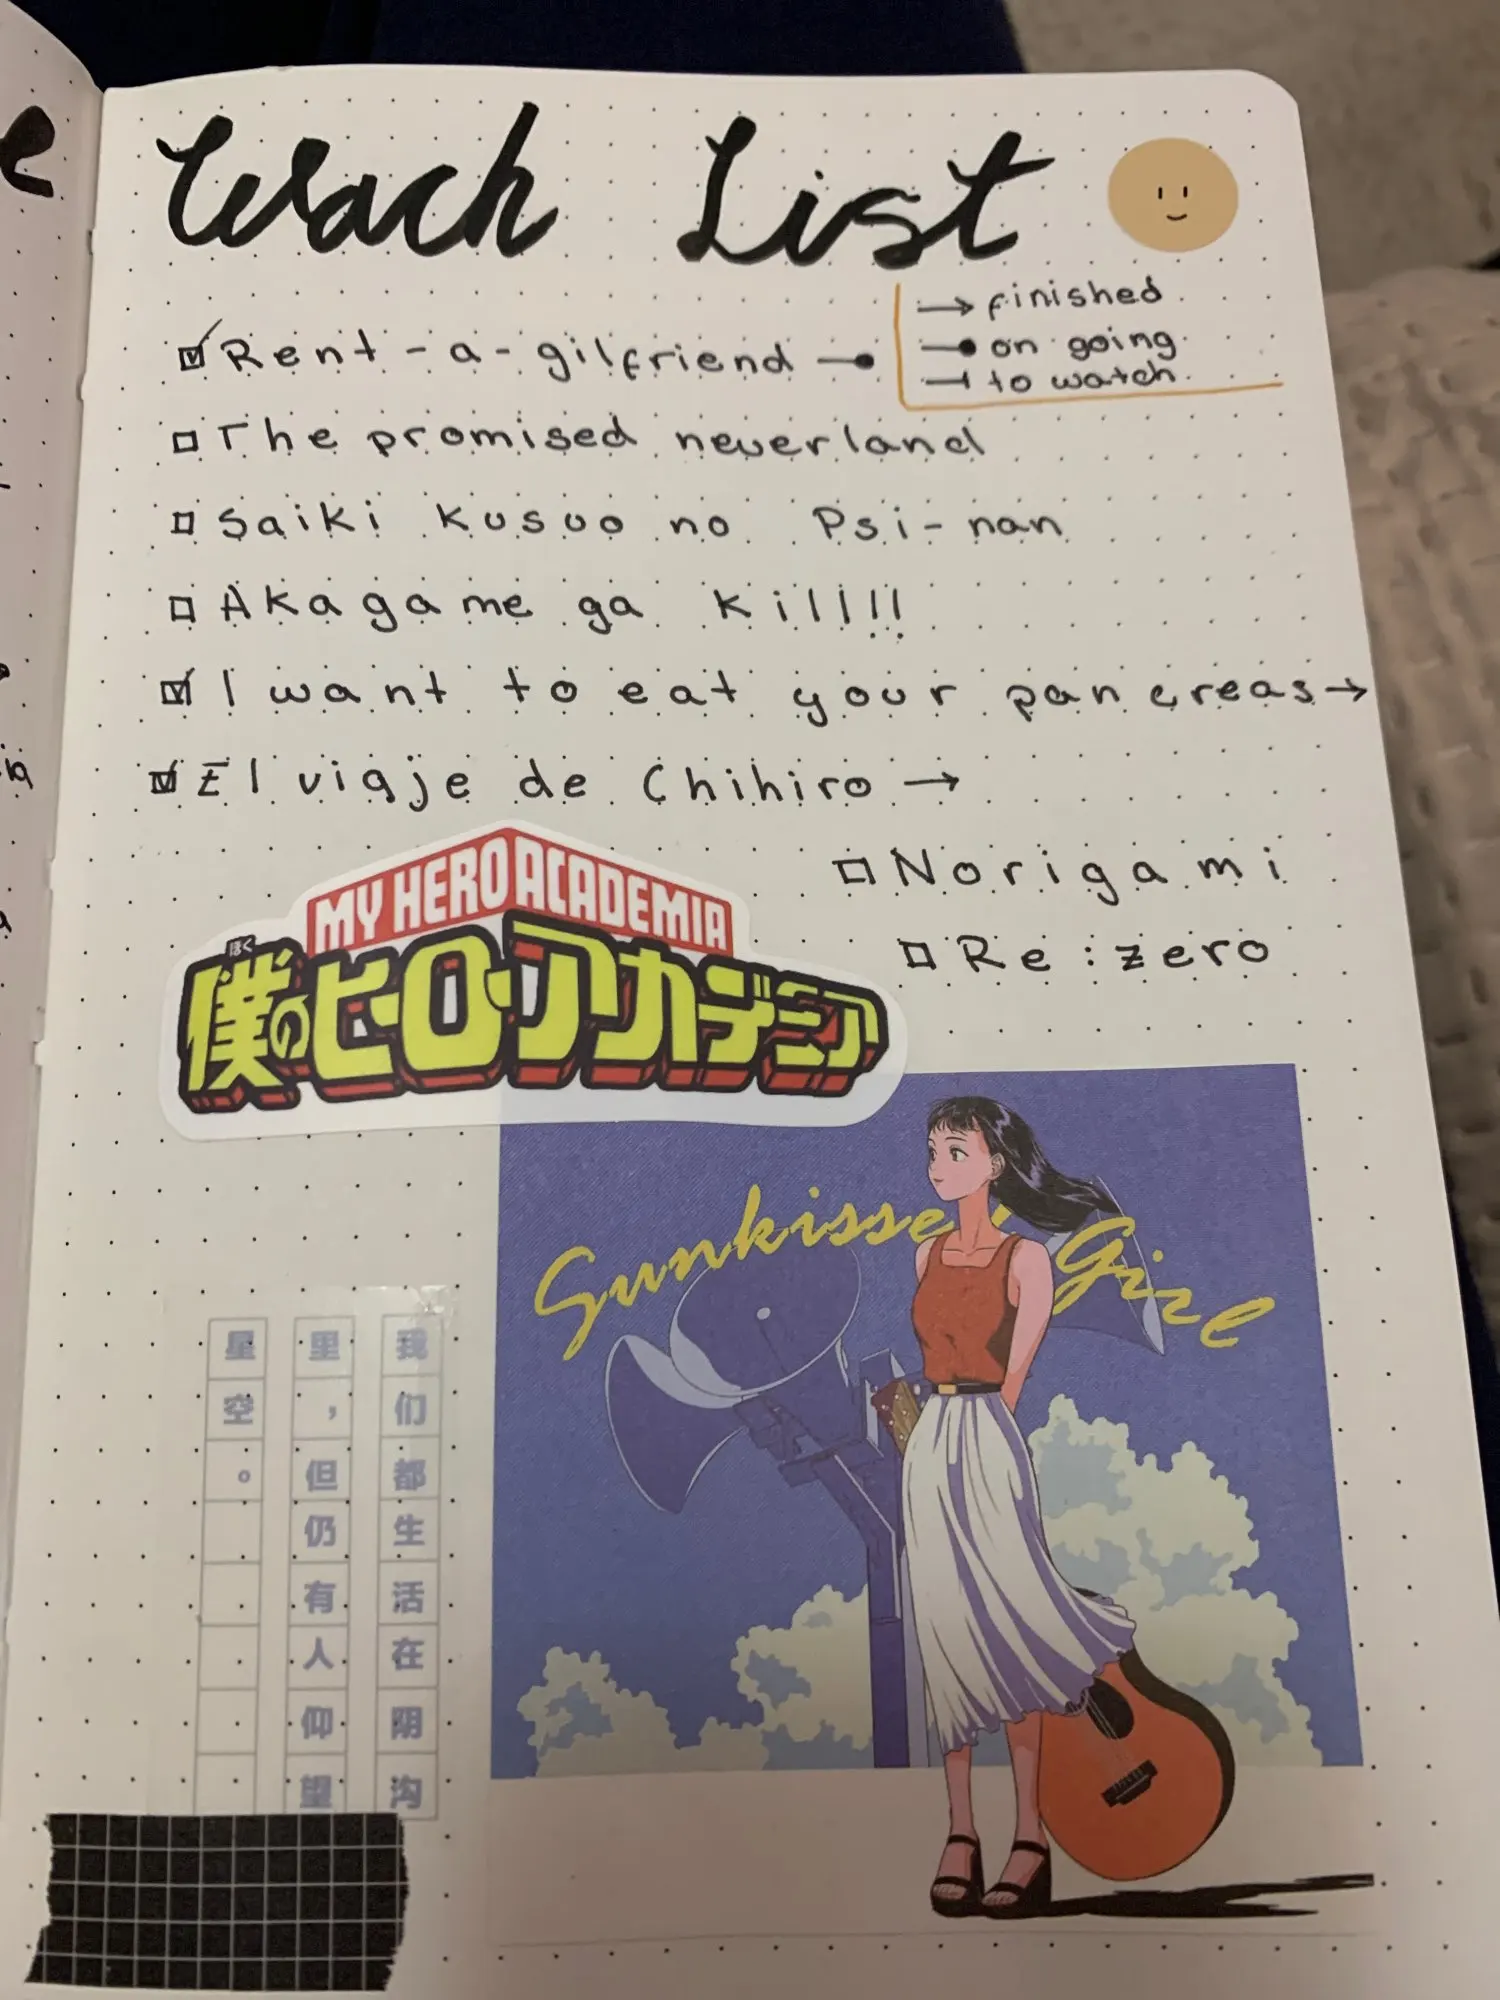 e
Wach List
→ finished
on going
to watch
Rent-a-gilfriend
The promised neverland
Saiki Kusuo no Psi-nan
Akagame ga Kill!!
I want to eat your pancreas →
El viaje de Chihiro →
Norigami
Re:zero
MY HERO ACADEMIA
ぼく
僕のヒーローアカデミア
Sunkisse Girl
我们都生活在阴沟
里，但仍有人仰望
星空。